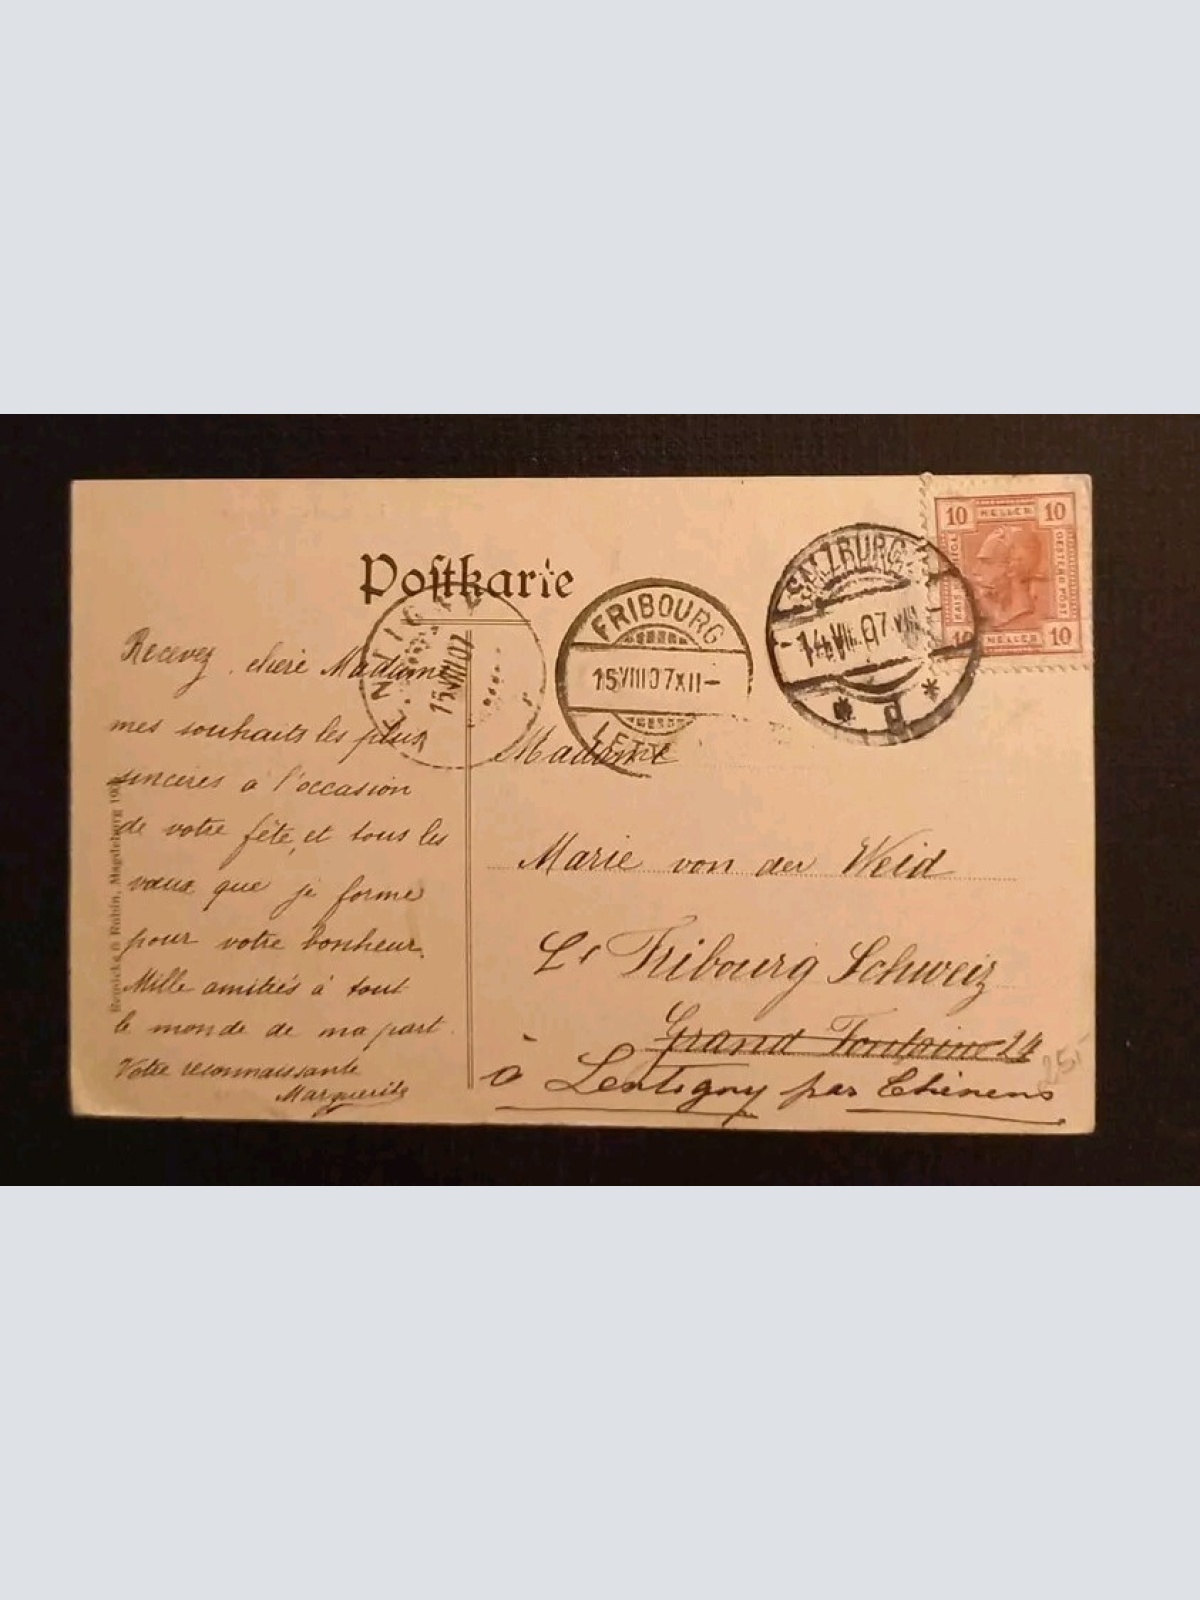 Postkarte
10 HELLER 10
OESTERR. POST
HELLER 10
SALZBURG
14 VIII 07
FRIBOURG
15 VIII 07 XII-
LETT
15 VIII 07
Recevez, chère Madame
mes souhaits les plus
sincères à l'occasion
de votre fête, et tous les
vœux que je forme
pour votre bonheur.
Mille amitiés à tout
le monde de ma part.
Votre reconnaissante
Marguerite
Madame
Marie von der Weid
Fribourg Schweiz
Grand Fontaine 24
à Lentigny par Chénens
25.-
Reinicke & Rubin, Magdeburg